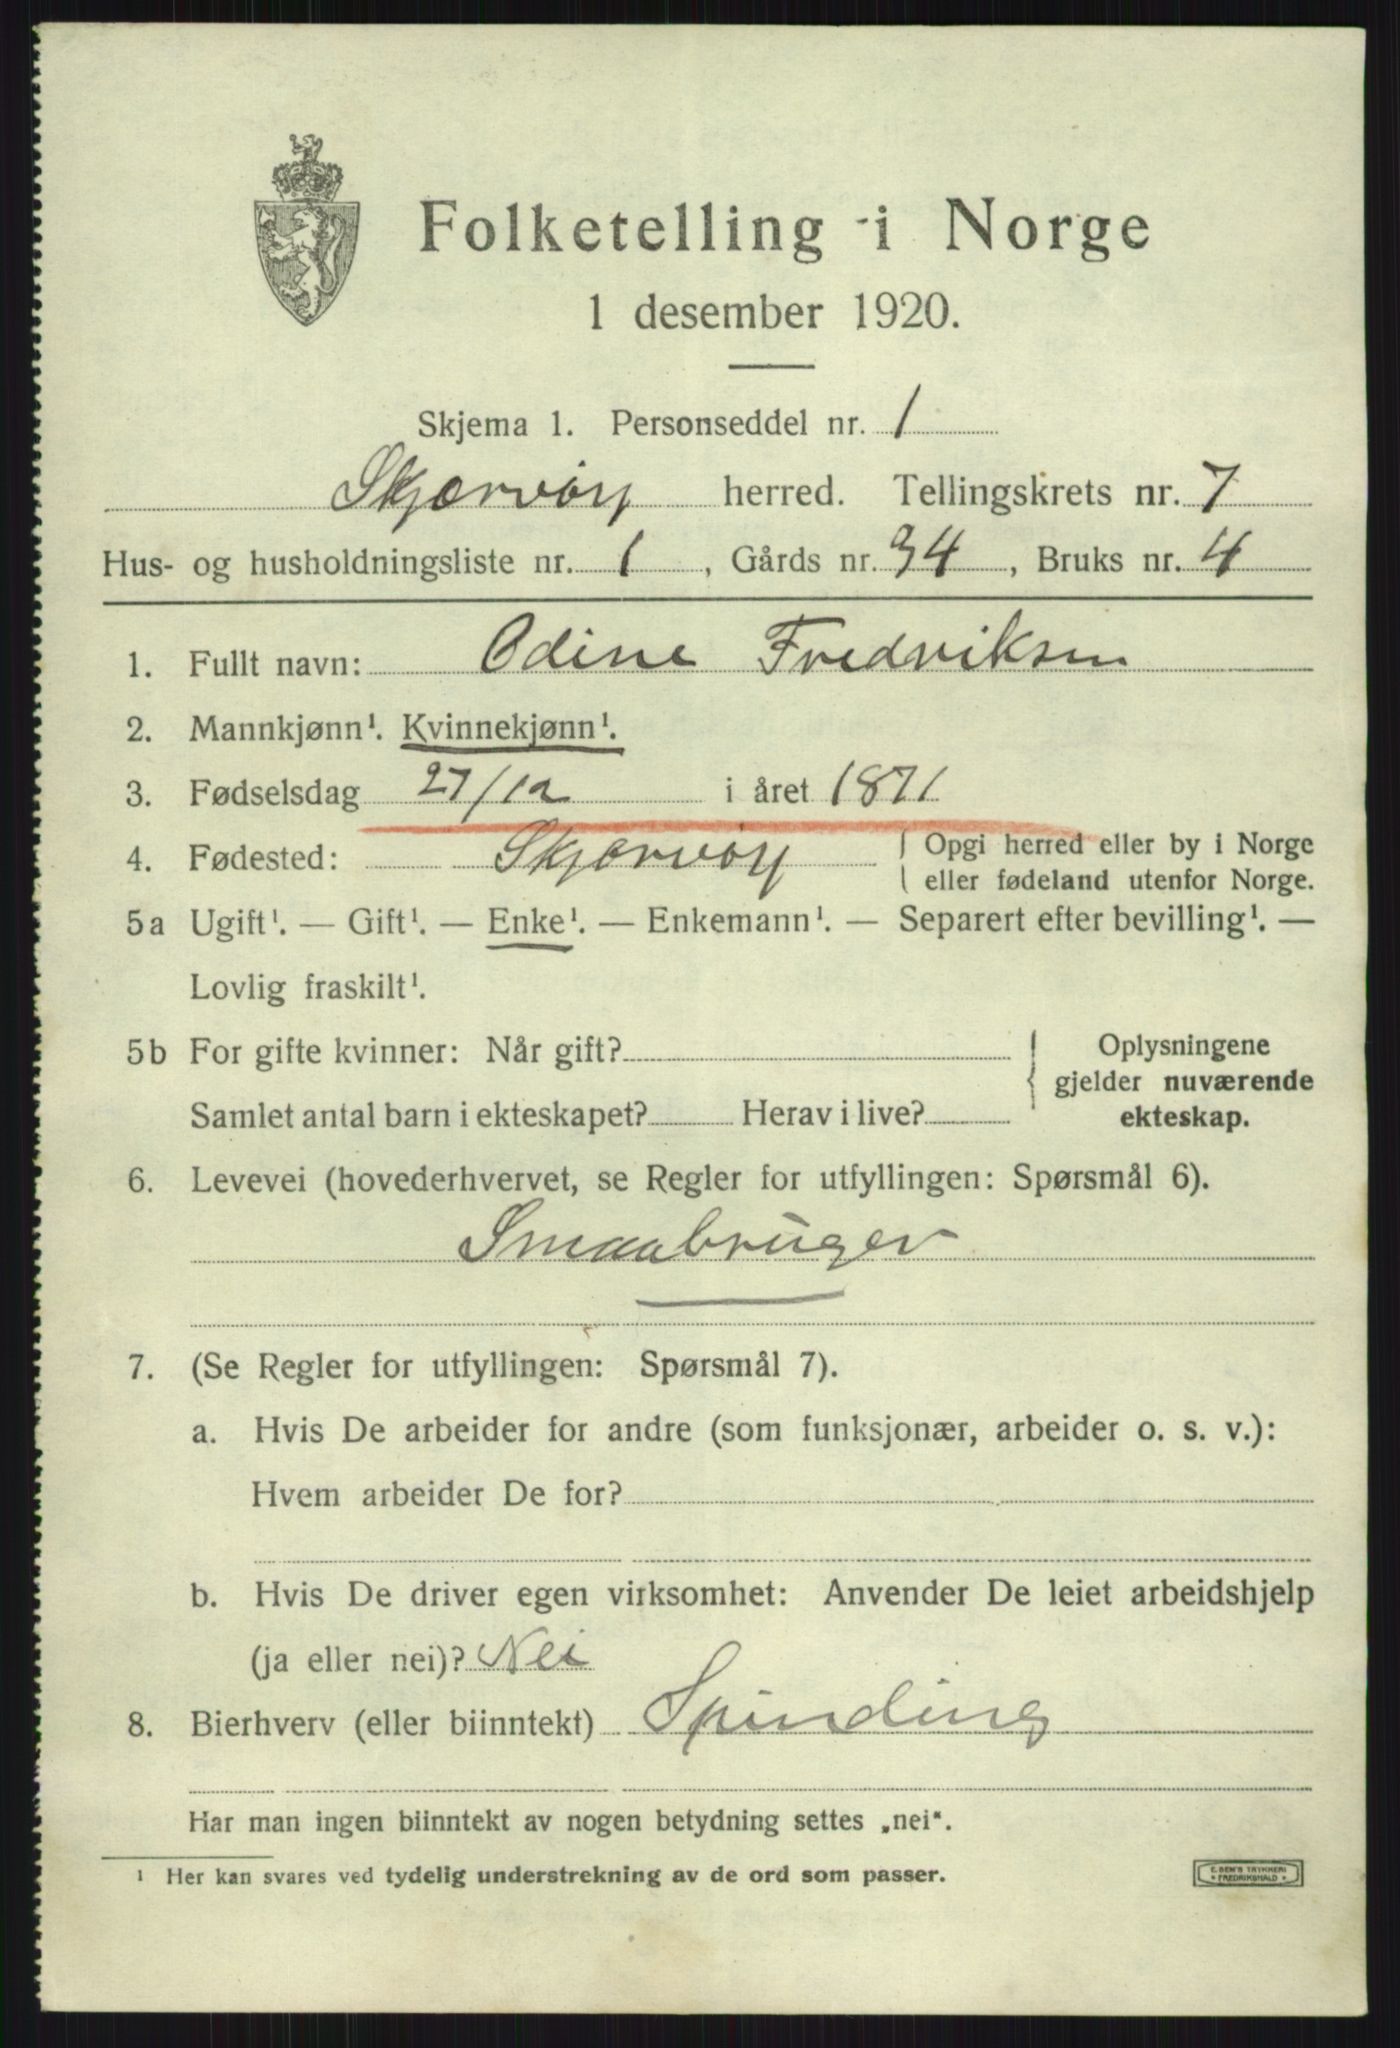 Folketelling i Norge
1 desember 1920.
Skjema 1. Personseddel nr. 1
Skjærvöy herred. Tellingskrets nr. 7
Hus- og husholdningsliste nr. 1, Gårds nr. 34, Bruks nr. 4
1. Fullt navn: Odine Fredriksen
2. Mannkjønn¹. Kvinnekjønn¹.
3. Fødselsdag 27/12 i året 1871
4. Fødested: Skjærvöy { Opgi herred eller by i Norge
eller fødeland utenfor Norge.
5a Ugift¹. — Gift¹. — Enke¹. — Enkemann¹. — Separert efter bevilling¹. —
Lovlig fraskilt¹.
5b For gifte kvinner: Når gift?
Samlet antal barn i ekteskapet? Herav i live?
Oplysningene
gjelder nuværende
ekteskap.
6. Levevei (hovederhvervet, se Regler for utfyllingen: Spørsmål 6).
Smaabruger
7. (Se Regler for utfyllingen: Spørsmål 7).
a. Hvis De arbeider for andre (som funksjonær, arbeider o. s. v.):
Hvem arbeider De for?
b. Hvis De driver egen virksomhet: Anvender De leiet arbeidshjelp
(ja eller nei)? Nei
8. Bierhverv (eller biinntekt) Spinding
Har man ingen biinntekt av nogen betydning settes „nei“.
¹ Her kan svares ved tydelig understrekning av de ord som passer.
E. SEM'S TRYKKERI
FREDRIKSHALD